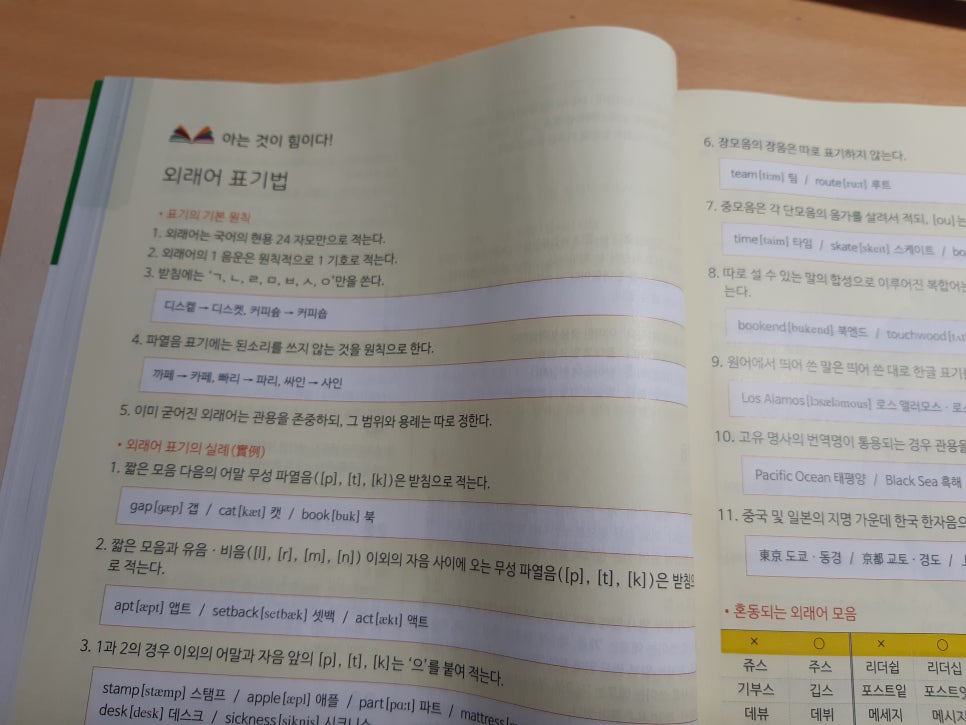 아는 것이 힘이다!
외래어 표기법
• 표기의 기본 원칙
1. 외래어는 국어의 현용 24 자모만으로 적는다.
2. 외래어의 1 음운은 원칙적으로 1 기호로 적는다.
3. 받침에는 'ㄱ, ㄴ, ㄹ, ㅁ, ㅂ, ㅅ, ㅇ'만을 쓴다.
디스켙 → 디스켓, 커피숖 → 커피숍
4. 파열음 표기에는 된소리를 쓰지 않는 것을 원칙으로 한다.
까페 → 카페, 빠리 → 파리, 싸인 → 사인
5. 이미 굳어진 외래어는 관용을 존중하되, 그 범위와 용례는 따로 정한다.
• 외래어 표기의 실례(實例)
1. 짧은 모음 다음의 어말 무성 파열음([p], [t], [k])은 받침으로 적는다.
gap[gæp] 갭 / cat[kæt] 캣 / book[buk] 북
2. 짧은 모음과 유음·비음([l], [r], [m], [n]) 이외의 자음 사이에 오는 무성 파열음([p], [t], [k])은 받침으
로 적는다.
apt[æpt] 앱트 / setback[setbæk] 셋백 / act[ækt] 액트
3. 1과 2의 경우 이외의 어말과 자음 앞의 [p], [t], [k]는 '으'를 붙여 적는다.
stamp[stæmp] 스탬프 / apple[æpl] 애플 / part[pɑːt] 파트 / mattress
desk[desk] 데스크 / sickness[siknis] 시크니스
6. 장모음의 장음은 따로 표기하지 않는다.
team[tiːm] 팀 / route[ruːt] 루트
7. 중모음은 각 단모음의 음가를 살려서 적되, [ou]는
time[taim] 타임 / skate[skeit] 스케이트 /
8. 따로 설 수 있는 말의 합성으로 이루어진 복합어는
는다.
bookend[bukend] 북엔드 / touchwood
9. 원어에서 띄어 쓴 말은 띄어 쓴 대로 한글 표기를
Los Alamos[lɔsæləmous] 로스 앨러모스·로스
10. 고유 명사의 번역명이 통용되는 경우 관용을
Pacific Ocean 태평양 / Black Sea 흑해
11. 중국 및 일본의 지명 가운데 한국 한자음으
東京 도쿄·동경 / 京都 교토·경도 /
• 혼동되는 외래어 모음
× ○ × ○
쥬스 주스 리더쉽 리더십
기부스 깁스 포스트잍 포스트잇
데뷰 데뷔 메세지 메시지